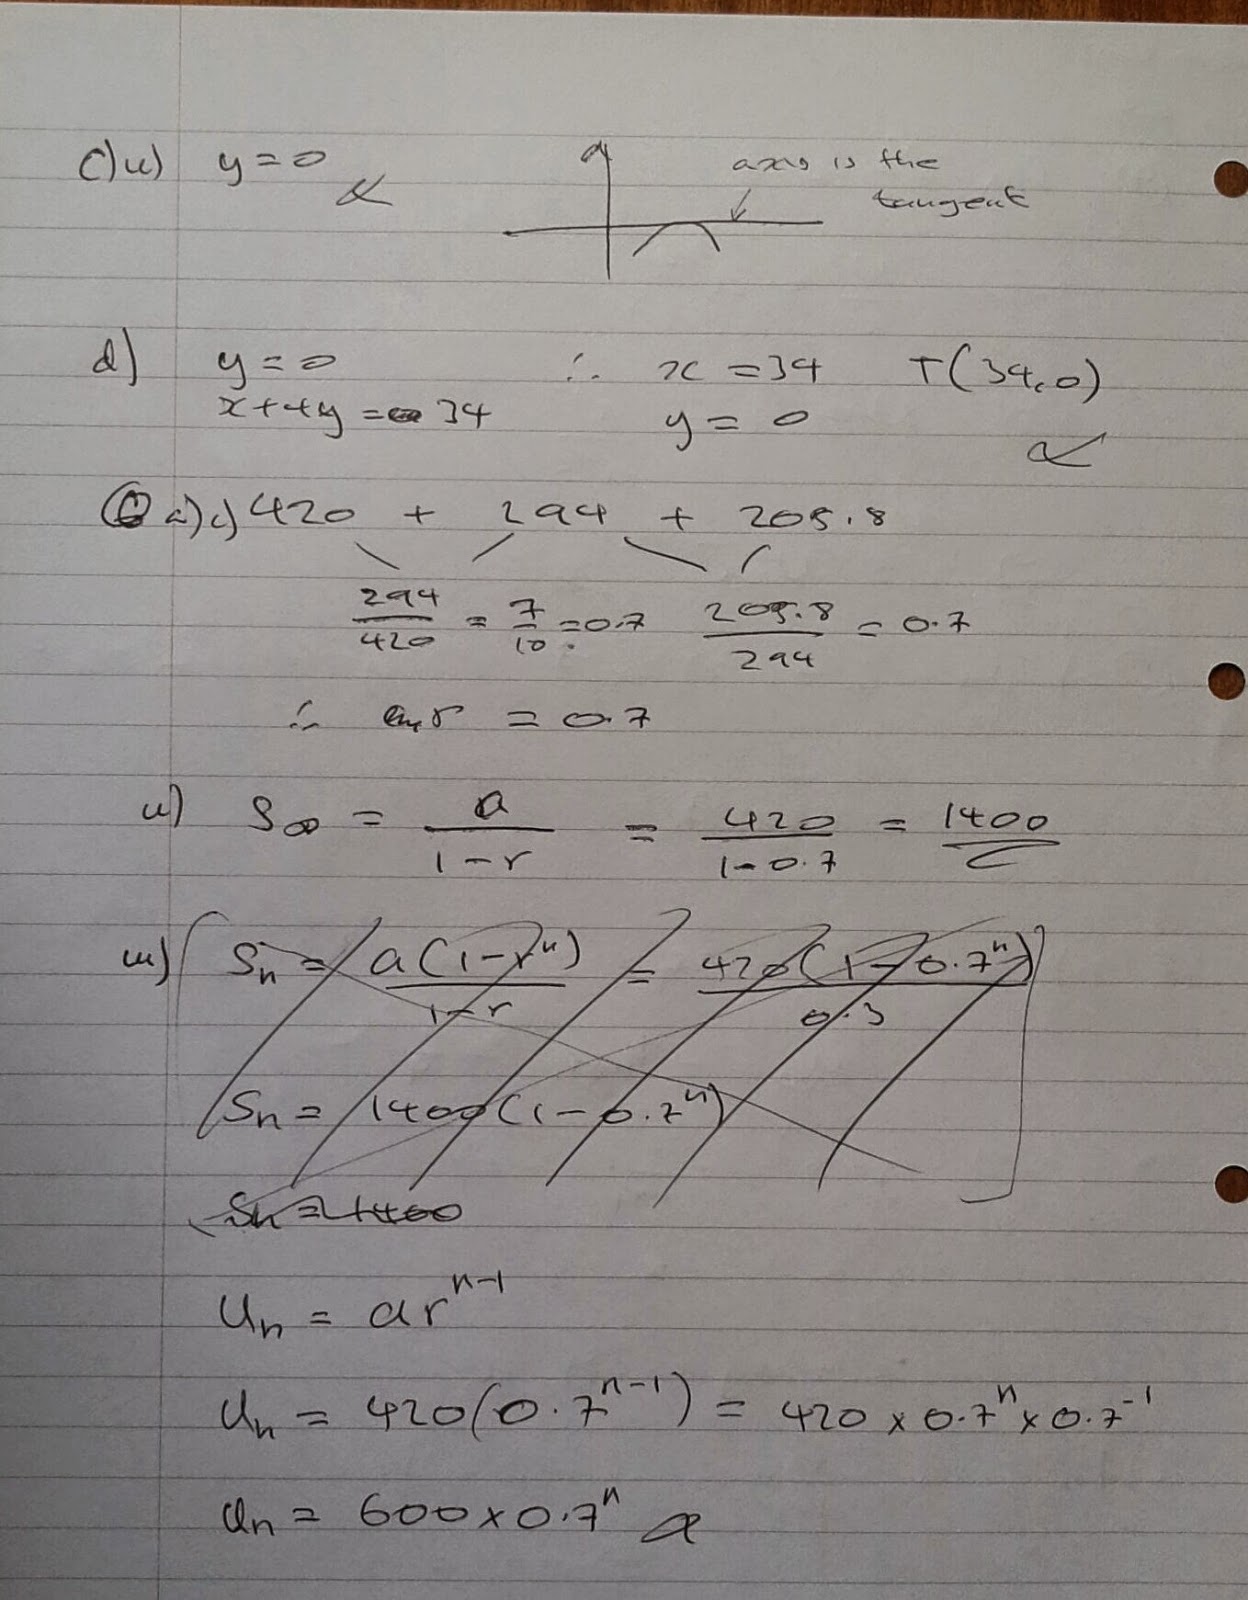 c)ii) y = 0 axis is the
tangent
d) y = 0 ∴ x = 34 T(34, 0)
x + 4y = 34 y = 0
6 a) i) 420 + 294 + 205.8
294/420 = 7/10 = 0.7 205.8/294 = 0.7
∴ r = 0.7
ii) S∞ = a/(1-r) = 420/(1-0.7) = 1400
iii) Sn = a(1-r^n)/(1-r) = 420(1-0.7^n)/0.3
Sn = 1400(1-0.7^n)
Sn = 1400
Un = ar^(n-1)
Un = 420(0.7^(n-1)) = 420 × 0.7^n × 0.7^-1
Un = 600 × 0.7^n